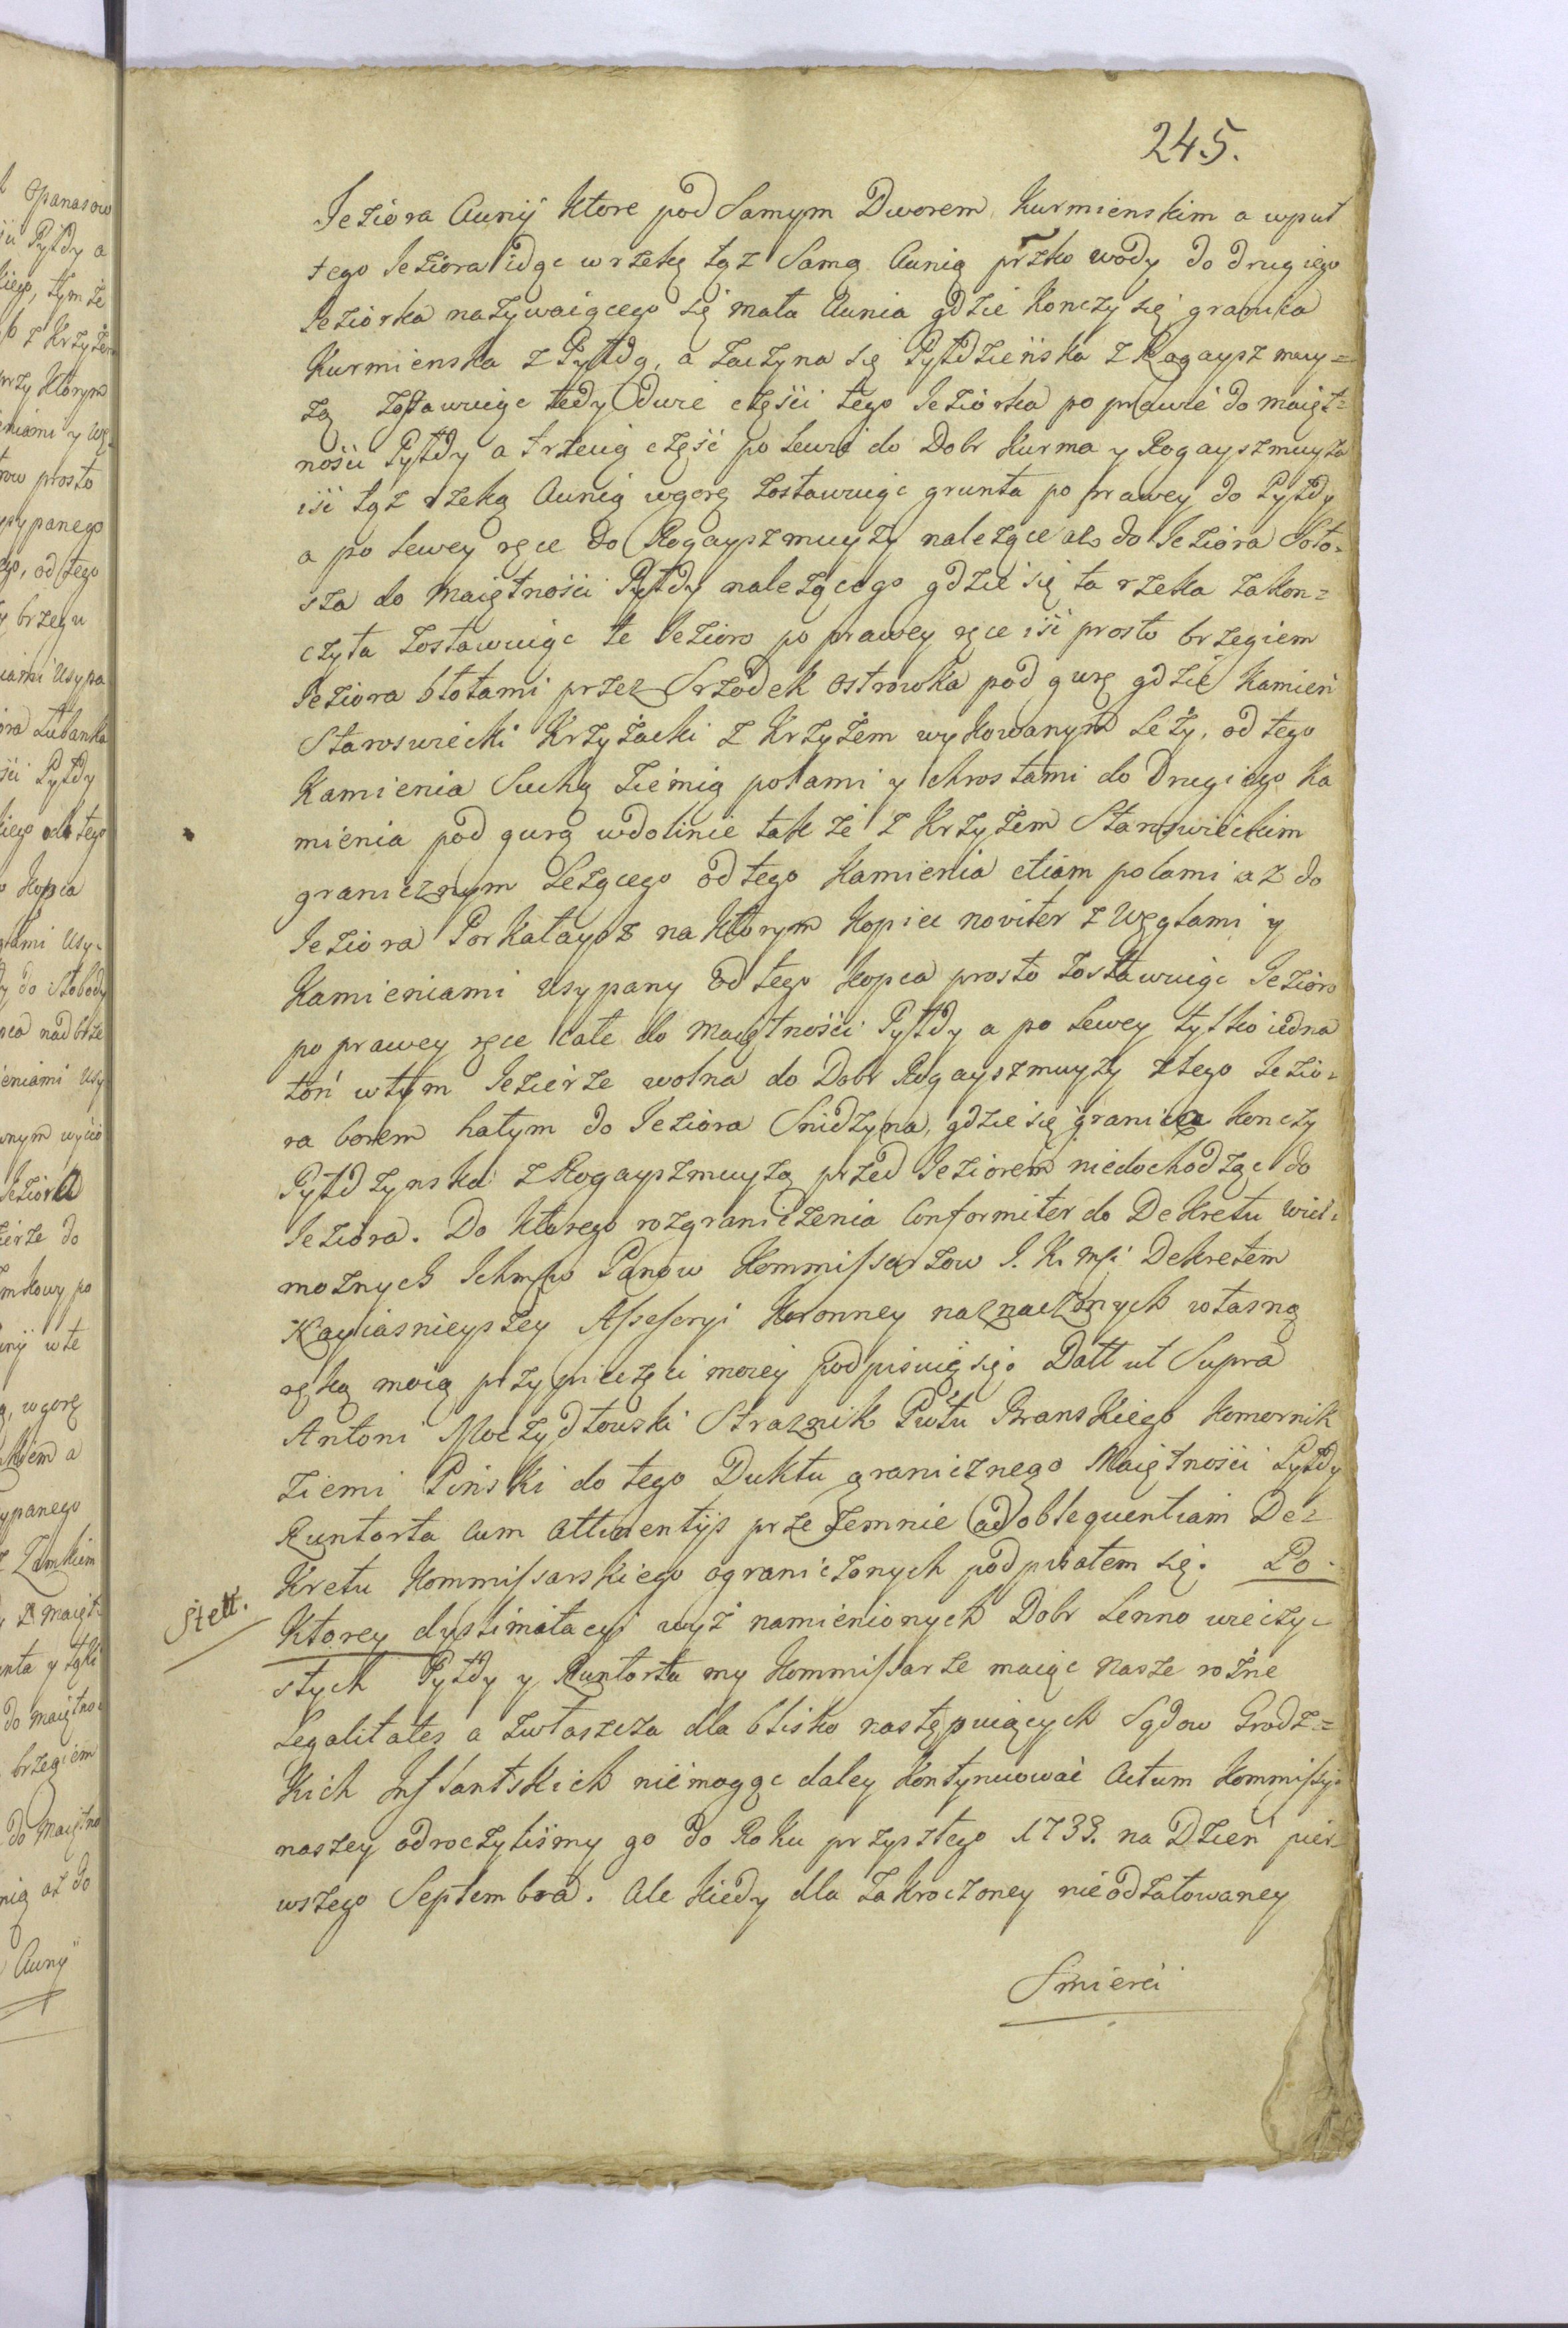 245.
Jeziora Aunij ktore pod Samym Dworem Kurmienskim a wpuł
tego Jeziora idąc w rzekę tąż Samą Aunią przko wody do drugiego
Jeziorka nazywaiącego się mała Aunia gdzie konczy się granica
Kurmienska z Pyłdą, a zaczyna się Pyłdzieńska z Rogayszmuy=
zą zostawuiąc tedy dwie części tego Jeziorka po prawie do maięt=
ności Pyłdy a trzecią część po lewie do Dobr Kurma y Rogayszmuyza
iść tąż rzeką Aunią wgorę zostawuiąc grunta po prawey do Pyłdy
a po lewey ręce do Rogayszmuyzy należące aż do Jeziora Soło=
sza do maiętności Pyłdy należącego gdzie się ta rzeka zakon=
czyła zostawuiąc te Jezioro po prawey ręce iść prosto brzegiem
Jeziora błotami przez Srzodek ostrowka pod gurę gdzie kamień
Staroswiecki Krzyżacki z Krzyżem wykowanym leży, od tego
Kamienia Suchą ziemią polami y chrostami do Drugiego Ka
mienia pod gurą wdolinie także z Krzyżem Staroswieckim
granicznym leżącego od tego kamienia etiam polami aż do
Jeziora Porkałaysz na ktorym kopiec noviter z węglami y
Kamieniami usypany od tego kopca prosto zostawuiąc Jezioro
po prawey ręce całe do maiętności Pyłdy a po lewey tylko iedna
toń wtym Jezierze wolna do Dobr Rogayszmuyzy z tego Jezio=
ra borem hatym do Jeziora Snidzyna, gdzie się granica konczy
Pyłdzynska z Rogayszmuyzą przed Jeziorem niedochodząc do
Jeziora. Do ktorego rozgraniczenia Conformiter do Dekretu wiel=
możnych Ichmciw Panow Kommissarzow J. K. Msi Dekretem
Nayiasnieyszey Assessoryi Koronney naznaczonych własną
ręką moią przy pieczęci moiey podpisuię się. Datt ut Supra
Antoni Moczydłowski Straznik Pwtu Branskiego Komornik
ziemi Pinski do tego Duktu granicznego Maiętności Pyłdy
Runtorta cum attinentijs przezemnie ad obsequentiam De=
Kretu Kommissarskiego ograniczonych podpisałem się. Po
Stett.
Ktorey dystimitacyi wyż namienionych Dobr Lenno wieczy=
stych Pyłdy y Runtorta my Kommissarze maiąc nasze rożne
Legalitates a zwłaszcza dla blisko następuiących Sądow Grodz=
Kich Inflantskich niemogąc daley kontynuować Actum Kommissyi
naszey odroczyliśmy go do Roku przyszłego 1733. na Dzień pier=
wszego Septembra. Ale kiedy dla zakroczoney nieodżałowaney
Smierci